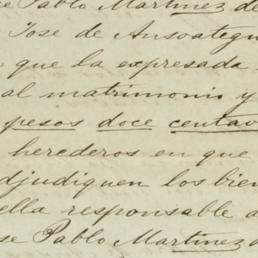 Pablo Martinez de
Jose de Ansoategui
que la expresada
al matrimonio y
pesos doce centav
herederos en que
djudiquen los bien
ella responsable a
se Pablo Martinez d